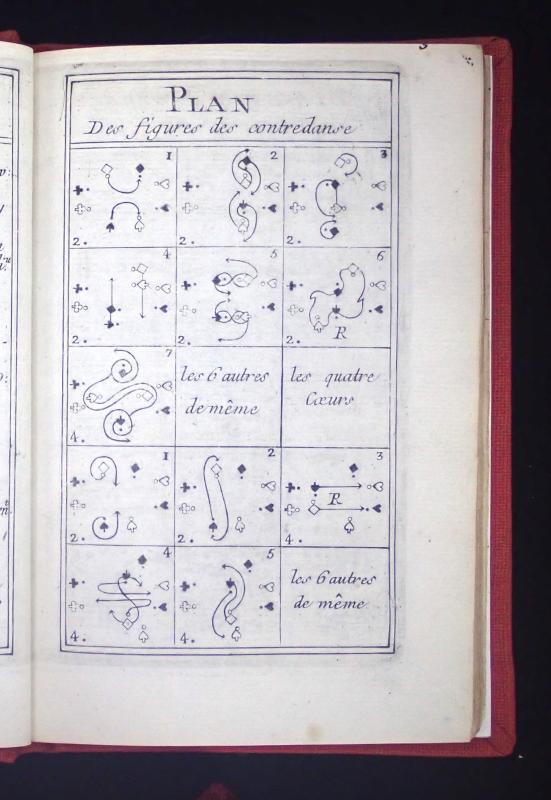 3
PLAN
Des figures des contredanse
1 2 3
2. 2. 2.
4 5 6
R
2. 2. 2.
7
les 6 autres
de même
les quatre
Cœurs
4.
1 2 3
R
2. 2. 4.
4 5
les 6 autres
de même.
4. 4.